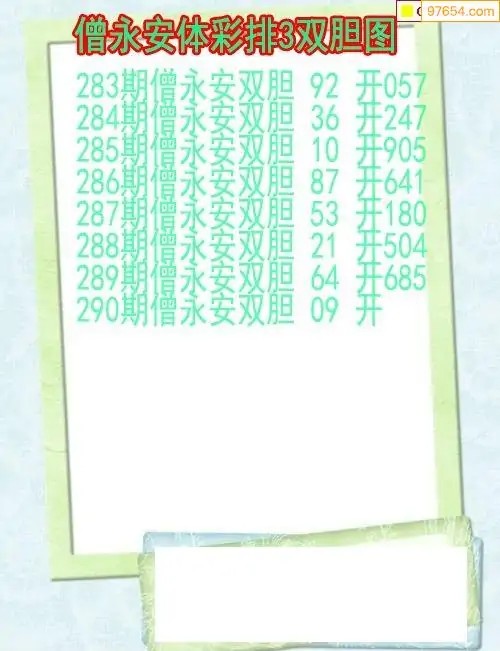 97654.com
僧永安体彩排3双胆图
283期僧永安双胆 92 开057
284期僧永安双胆 36 开247
285期僧永安双胆 10 开905
286期僧永安双胆 87 开641
287期僧永安双胆 53 开180
288期僧永安双胆 21 开504
289期僧永安双胆 64 开685
290期僧永安双胆 09 开